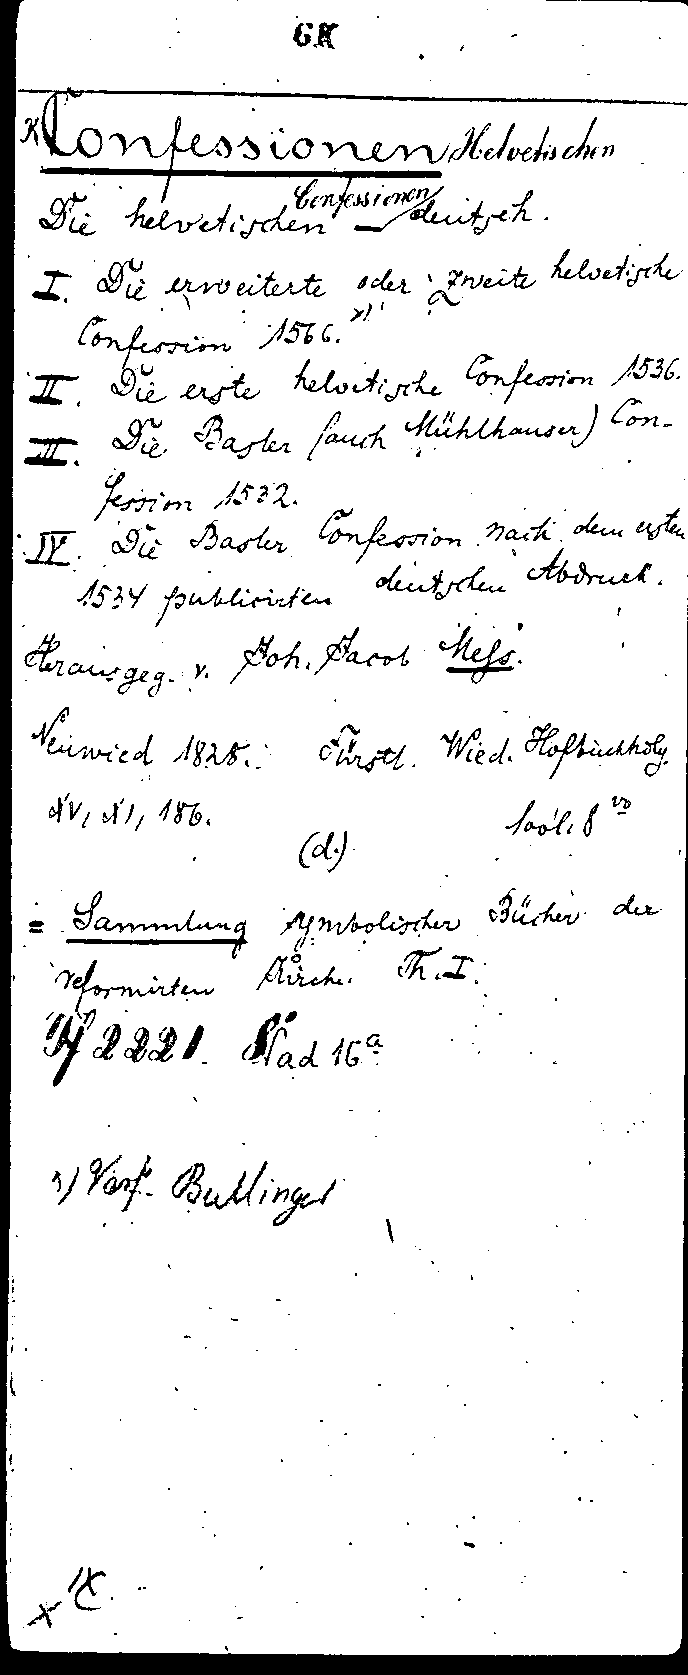 GK
Confessionen Helvetischen
Die helvetischen Confessionen deutsch.
I. Die erweiterte oder zweite helvetische
Confession 1566. x)
II. Die erste helvetische Confession 1536.
III. Die Basler (auch Mühlhauser) Con-
fession 1532.
IV. Die Basler Confession nach dem ersten
1534 publicirten deutschen Abdruck.
Herausgeg. v. Joh. Jacob Mess.
Neuwied 1828. Fürstl. Wied. Hofbuchhdlg.
XV, XI, 186. 8vo
(d.)
= Sammlung symbolischer Bücher der
reformirten Kirche. Th. I.
2221. 16a
x) Verf. Bullinger